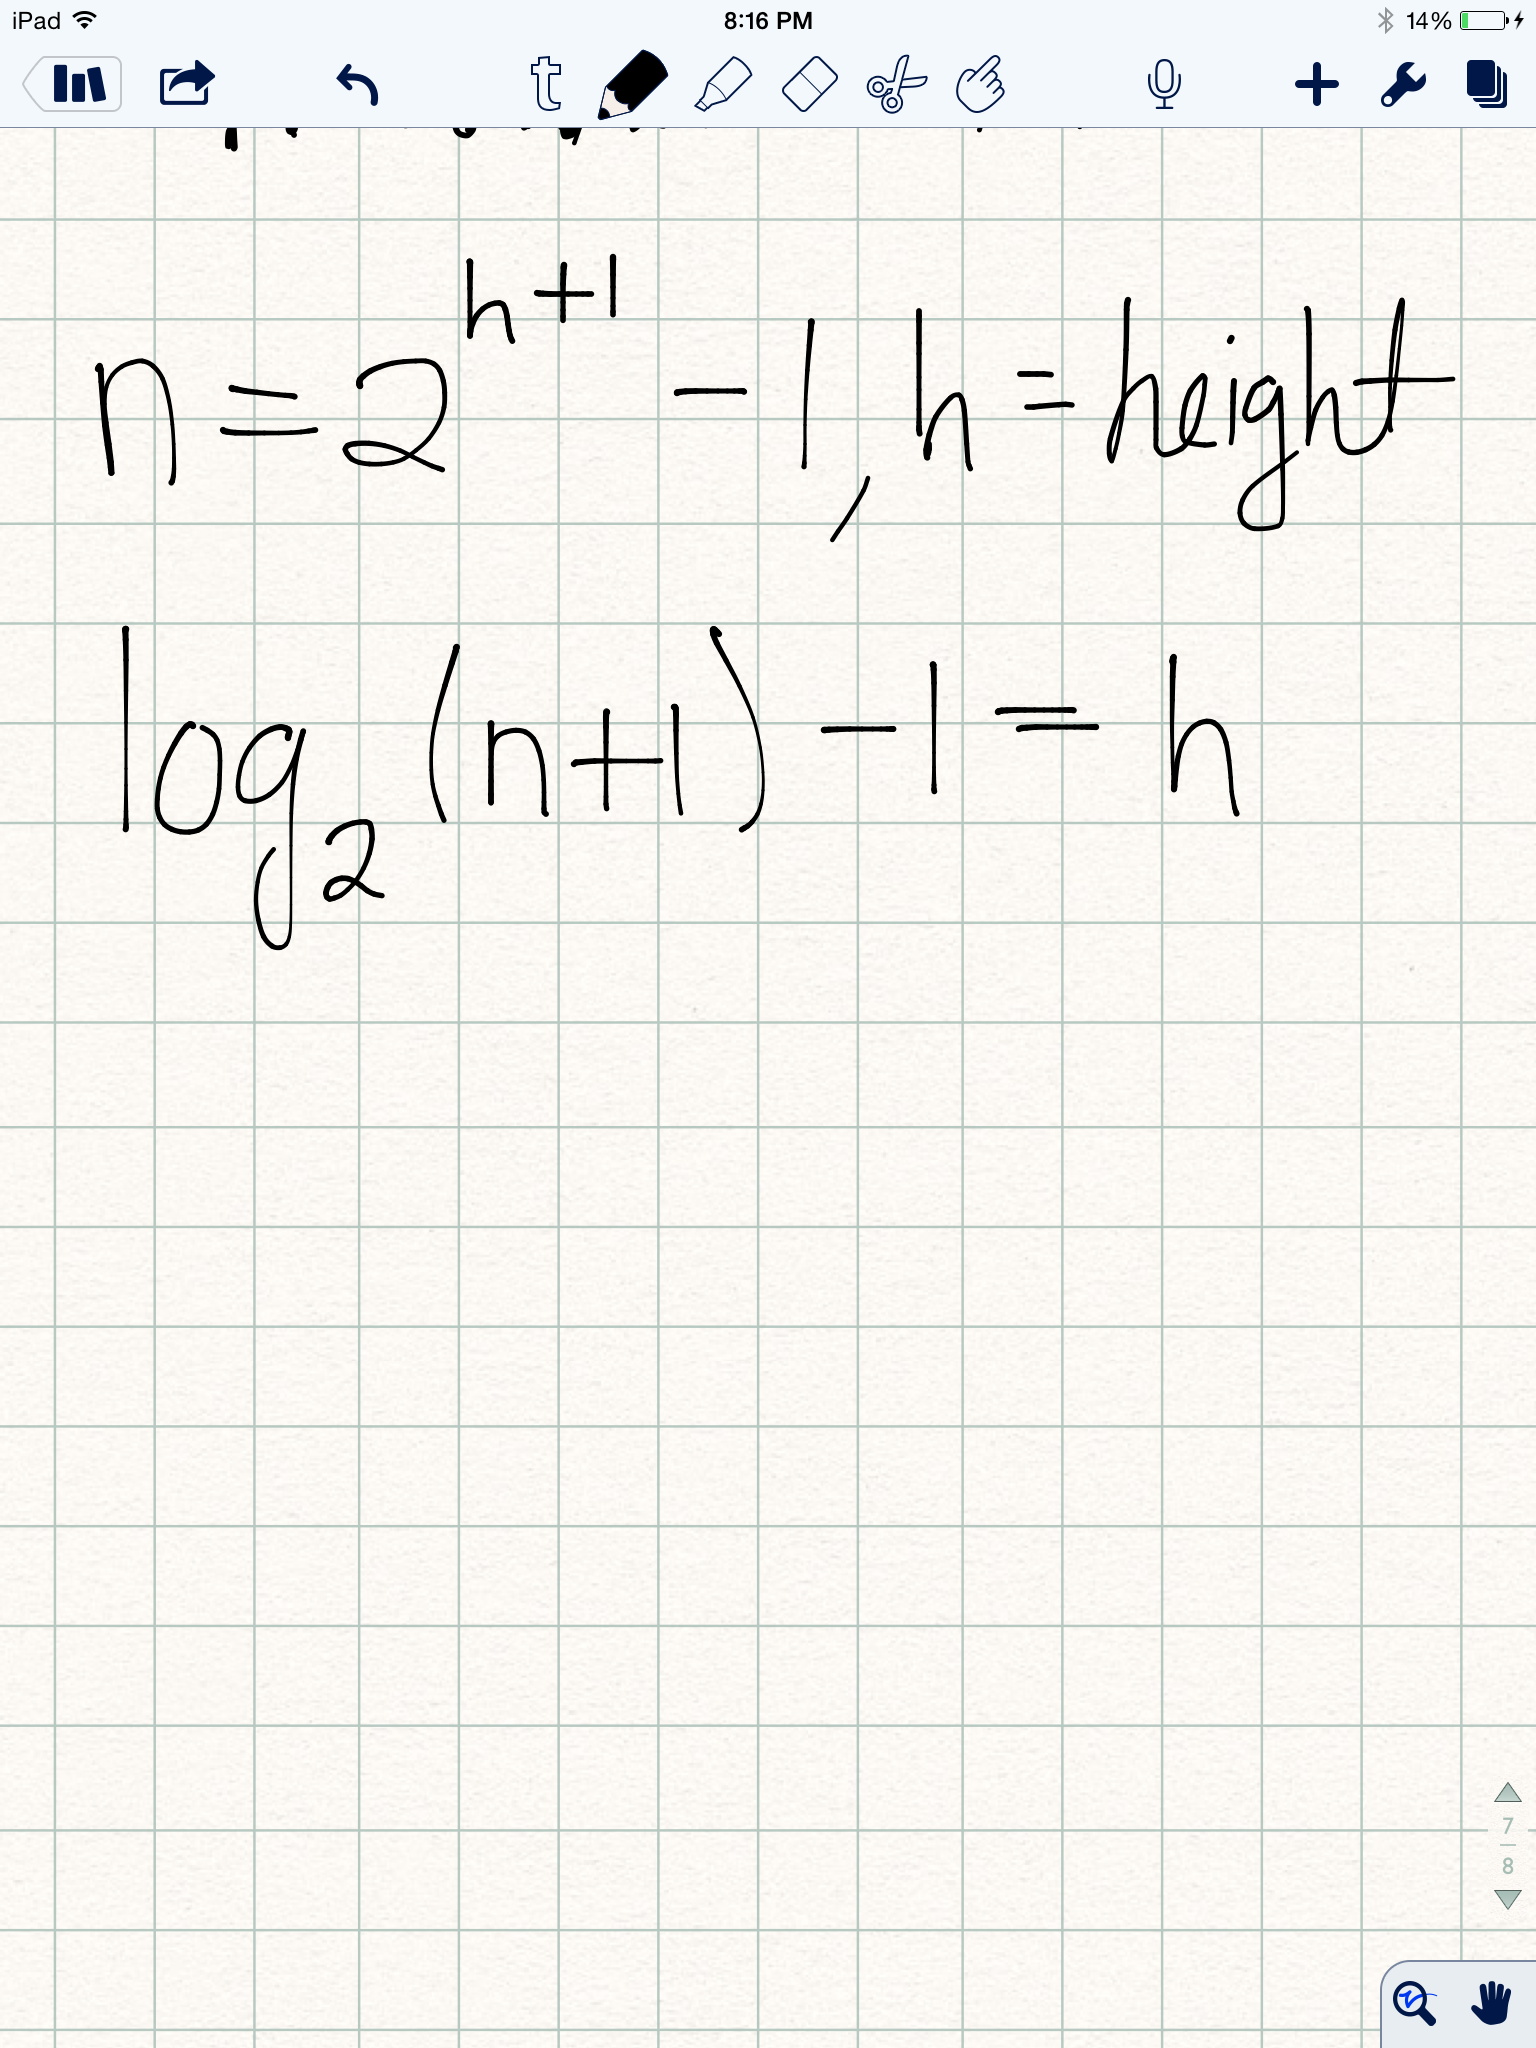 iPad 8:16 PM 14%
t
n = 2^{h+1} - 1, h = height
log_2 (n+1) - 1 = h
7
8